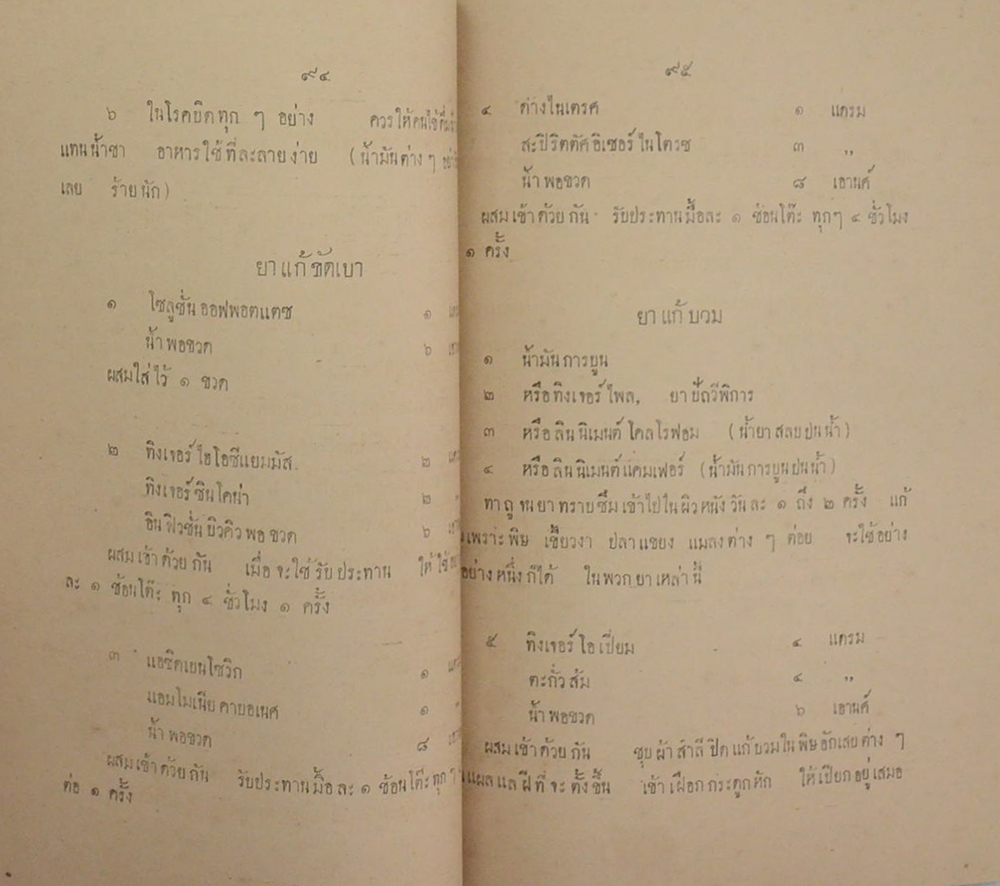 ๙๔
๖ ในโรคบิดทุก ๆ อย่าง ควรให้คนไข้
แทนน้ำชา อาหารใช้ที่ละลายง่าย (น้ำมันต่าง ๆ
เลย ร้ายนัก)
ยาแก้ขัดเบา
๑ โซลูชั่นออฟพอตแตซ ๑
น้ำพอขวด ๖
ผสมใส่ไว้ ๑ ขวด
๒ ทิงเจอร์ไฮโอซีแยมมัส. ๒
ทิงเจอร์ซินโคน่า ๒ "
อินฟิวชั่นบิวคิวพอขวด ๖
ผสมเข้าด้วยกัน เมื่อจะใช่รับประทาน ให้ใช้
ละ ๑ ช้อนโต๊ะ ทุก ๔ ชั่วโมง ๑ ครั้ง
๓ แอซิดเยนโซวิก ๑
แอมโมเนียคาบอเนศ ๑ "
น้ำพอขวด ๘
ผสมเข้าด้วยกัน รับประทานมื้อละ ๑ ช้อนโต๊ะทุก ๆ
ต่อ ๑ ครั้ง
๙๕
๔ ด่างไนเตรศ ๑ แดรม
สะปิริตตัศอิเซอร์ไนโตรซ ๓ "
น้ำพอขวด ๘ เอานด์
ผสมเข้าด้วยกัน รับประทานมื้อละ ๑ ช้อนโต๊ะ ทุกๆ ๔ ชั่วโมง
๑ ครั้ง
ยาแก้บวม
๑ น้ำมันการบูน
๒ หรือทิงเจอร์ไพล, ยาปัถวีพิการ
๓ หรือลินนิเมนต์โคลโรฟอม (น้ำยาสลบปนน้ำ)
๔ หรือลินนิเมนต์แคมเฟอร์ (น้ำมันการบูนปนน้ำ)
ทาถูจนยาทราบซึมเข้าไปในผิวหนังวันละ ๑ ถึง ๒ ครั้ง แก้
เพราะพิษ เขี้ยวงา ปลาแขยง แมลงต่าง ๆ ต่อย จะใช้อย่าง
อย่างหนึ่งก็ได้ ในพวกยาเหล่านี้
๕ ทิงเจอร์โอเปี่ยม ๔ แดรม
ตะกั่วส้ม ๔ "
น้ำพอขวด ๖ เอานด์
ผสมเข้าด้วยกัน ชุบผ้าสำลีปิดแก้บวมในพิษอักเสบต่าง ๆ
แผลแลฝีที่จะตั้งขึ้น เข้าเฝือกกระดูกหัก ให้เปียกอยู่เสมอ